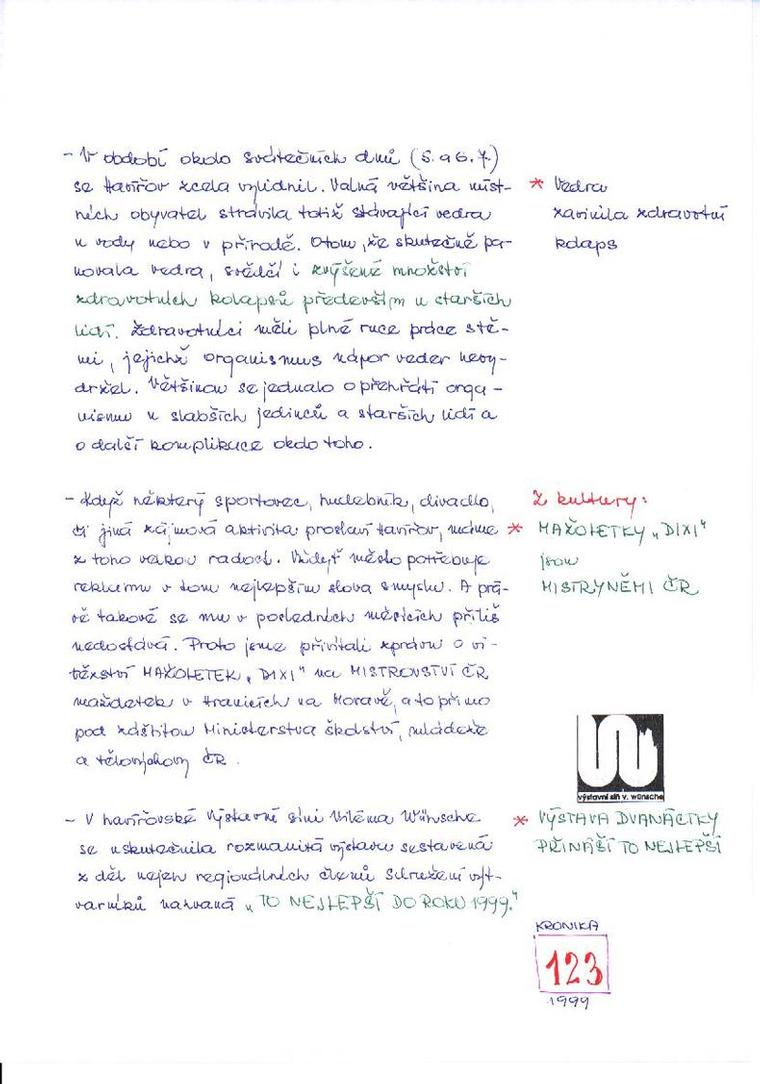 - V období okolo svátečních dnů (5. a 6. 7.)
se Havířov zcela vylidnil. Valná většina míst-
ních obyvatel strávila totiž stávající vedra
u vody nebo v přírodě. O tom, že skutečně pa-
novala vedra, svědčí i zvýšené množství
zdravotních kolapsů především u starších
lidí. Zdravotníci měli plné ruce práce s tě-
mi, jejichž organismus nápor veder nevy-
držel. Většinou se jednalo o přehřátí orga-
nismu u slabších jedinců a starších lidí a
o další komplikace okolo toho.
* Vedra
zavinila zdravotní
kolaps
- Když některý sportovec, hudebník, divadlo,
či jiná zájmová aktivita proslaví Havířov, máme
z toho velkou radost. Vždyť město potřebuje
reklamu v tom nejlepším slova smyslu. A prá-
vě takové se mu v posledních měsících příliš
nedostává. Proto jsme přivítali zprávu o ví-
tězství MAŽORETEK „DIXI" na MISTROVSTVÍ ČR
mažoretek v Hranicích na Moravě, a to přímo
pod záštitou Ministerstva školství, mládeže
a tělovýchovy ČR.
Z kultury:
* MAŽORETKY „DIXI"
jsou
MISTRYNĚMI ČR
výstavní síň v. wünsche
- V havířovské Výstavní síni Viléma Wünsche
se uskutečnila rozmanitá výstava sestavená
z děl nejen regionálních členů Sdružení výt-
varníků nazvaná „TO NEJLEPŠÍ DO ROKU 1999."
* VÝSTAVA DVANÁCTKY
PŘINÁŠÍ TO NEJLEPŠÍ
KRONIKA
123
1999